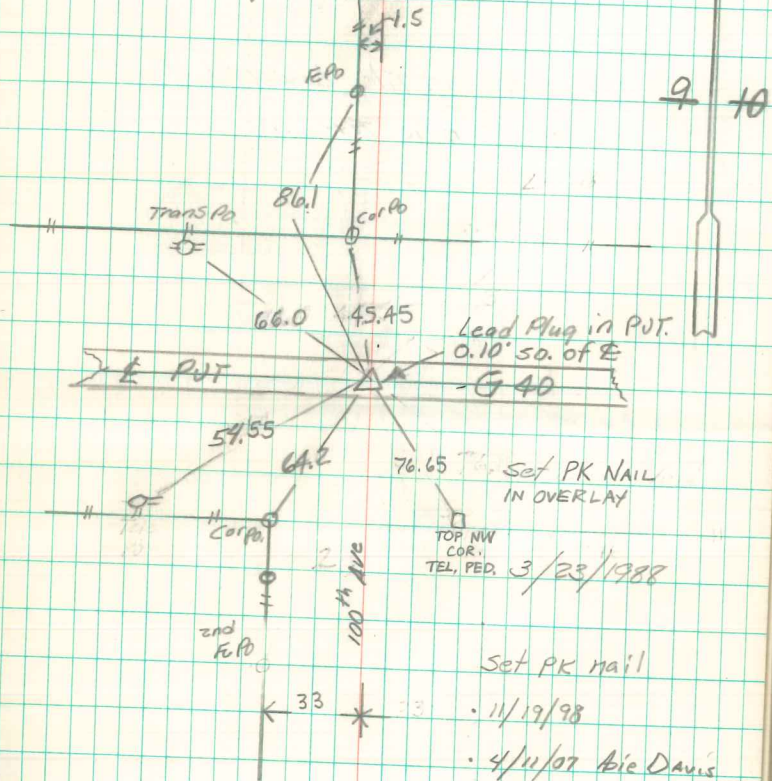 1.5
F.Po
9 10
Trans Po
86.1
Cor Po
66.0
45.45
Lead Plug in PVT.
0.10' so. of ℄
℄ PVT
G 40
54.55
64.2
76.65
Set PK NAIL
IN OVERLAY
Cor Po.
TOP NW
COR.
TEL. PED.
3/23/1988
100th Ave
2nd
F.Po
Set PK nail
33
· 11/19/98
· 4/11/07 Abie Davis